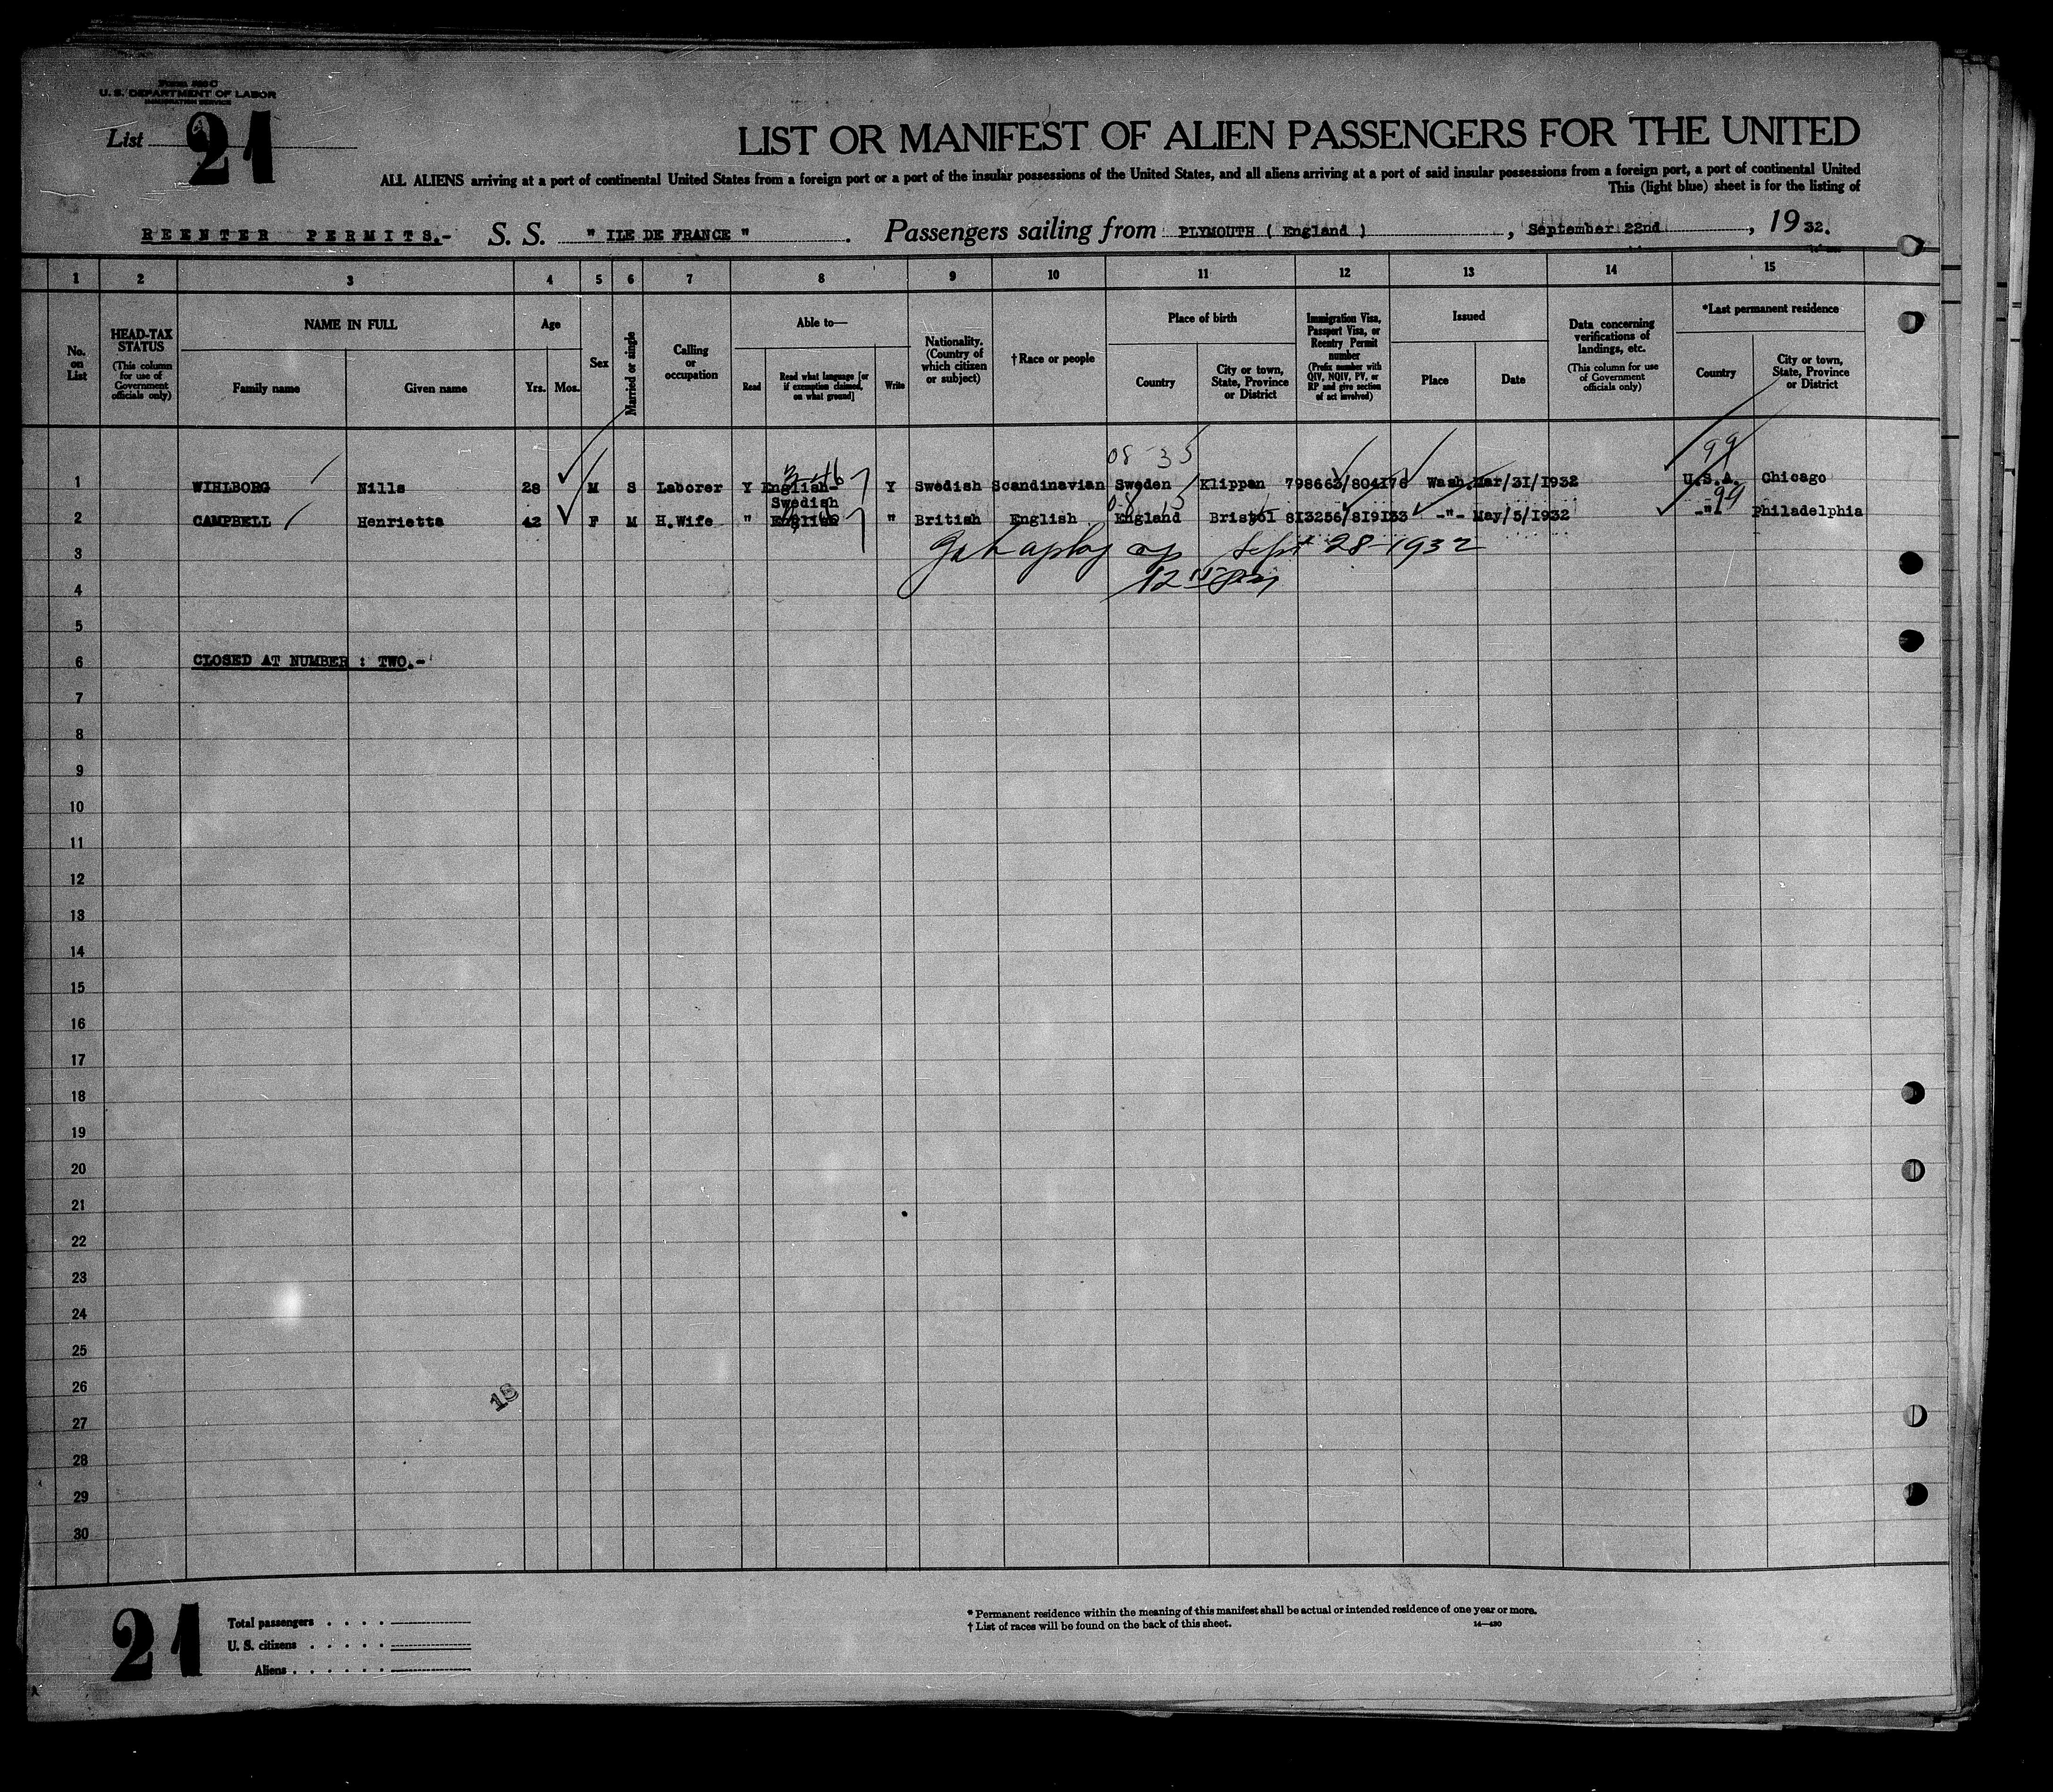 Form 500 C
U. S. DEPARTMENT OF LABOR
IMMIGRATION SERVICE
List 21
LIST OR MANIFEST OF ALIEN PASSENGERS FOR THE UNITED
ALL ALIENS arriving at a port of continental United States from a foreign port or a part of the insular possessions of the United States, and all aliens arriving at a port of said insular possessions from a foreign port, a part of continental United
This (light blue) sheet is for the listing of
REENTER PERMITS.- S. S. " ILE DE FRANCE " . Passengers sailing from PLYMOUTH ( England ) , September 22nd , 19 32.
1 2 3 4 5 6 7 8 9 10 11 12 13 14 15
No. on List
HEAD-TAX STATUS (This column for use of Government officials only)
NAME IN FULL
Family name
Given name
Age
Yrs. Mos.
Sex
Married or single
Calling or occupation
Able to—
Read
Read what language [or if exemption claimed, on what ground]
Write
Nationality. (Country of which citizen or subject)
†Race or people
Place of birth
Country
City or town, State, Province or District
Immigration Visa, Passport Visa, or Reentry Permit number (Prefix number with QIV, NQIV, PV, or RP and give section of act involved)
Issued
Place
Date
Data concerning verifications of landings, etc. (This column for use of Government officials only)
*Last permanent residence
Country
City or town, State, Province or District
08 35 99
1 WIHLBORG Nills 28 M S Laborer Y English- Swedish Y Swedish Scandinavian Sweden Klippan 798663/804176 Wash. Mar/31/1932 U.S.A. Chicago
99
2 CAMPBELL Henrietta 42 F M H.Wife " English " British English England Bristol 813256/819133 -"- May/5/1932 -"- Philadelphia
3 Sept 28-1932
4 12
5
6 CLOSED AT NUMBER : TWO.-
7
8
9
10
11
12
13
14
15
16
17
18
19
20
21
22
23
24
25
26
27
28
29
30
21
Total passengers
U. S. citizens
Aliens
* Permanent residence within the meaning of this manifest shall be actual or intended residence of one year or more.
† List of races will be found on the back of this sheet. 14—430